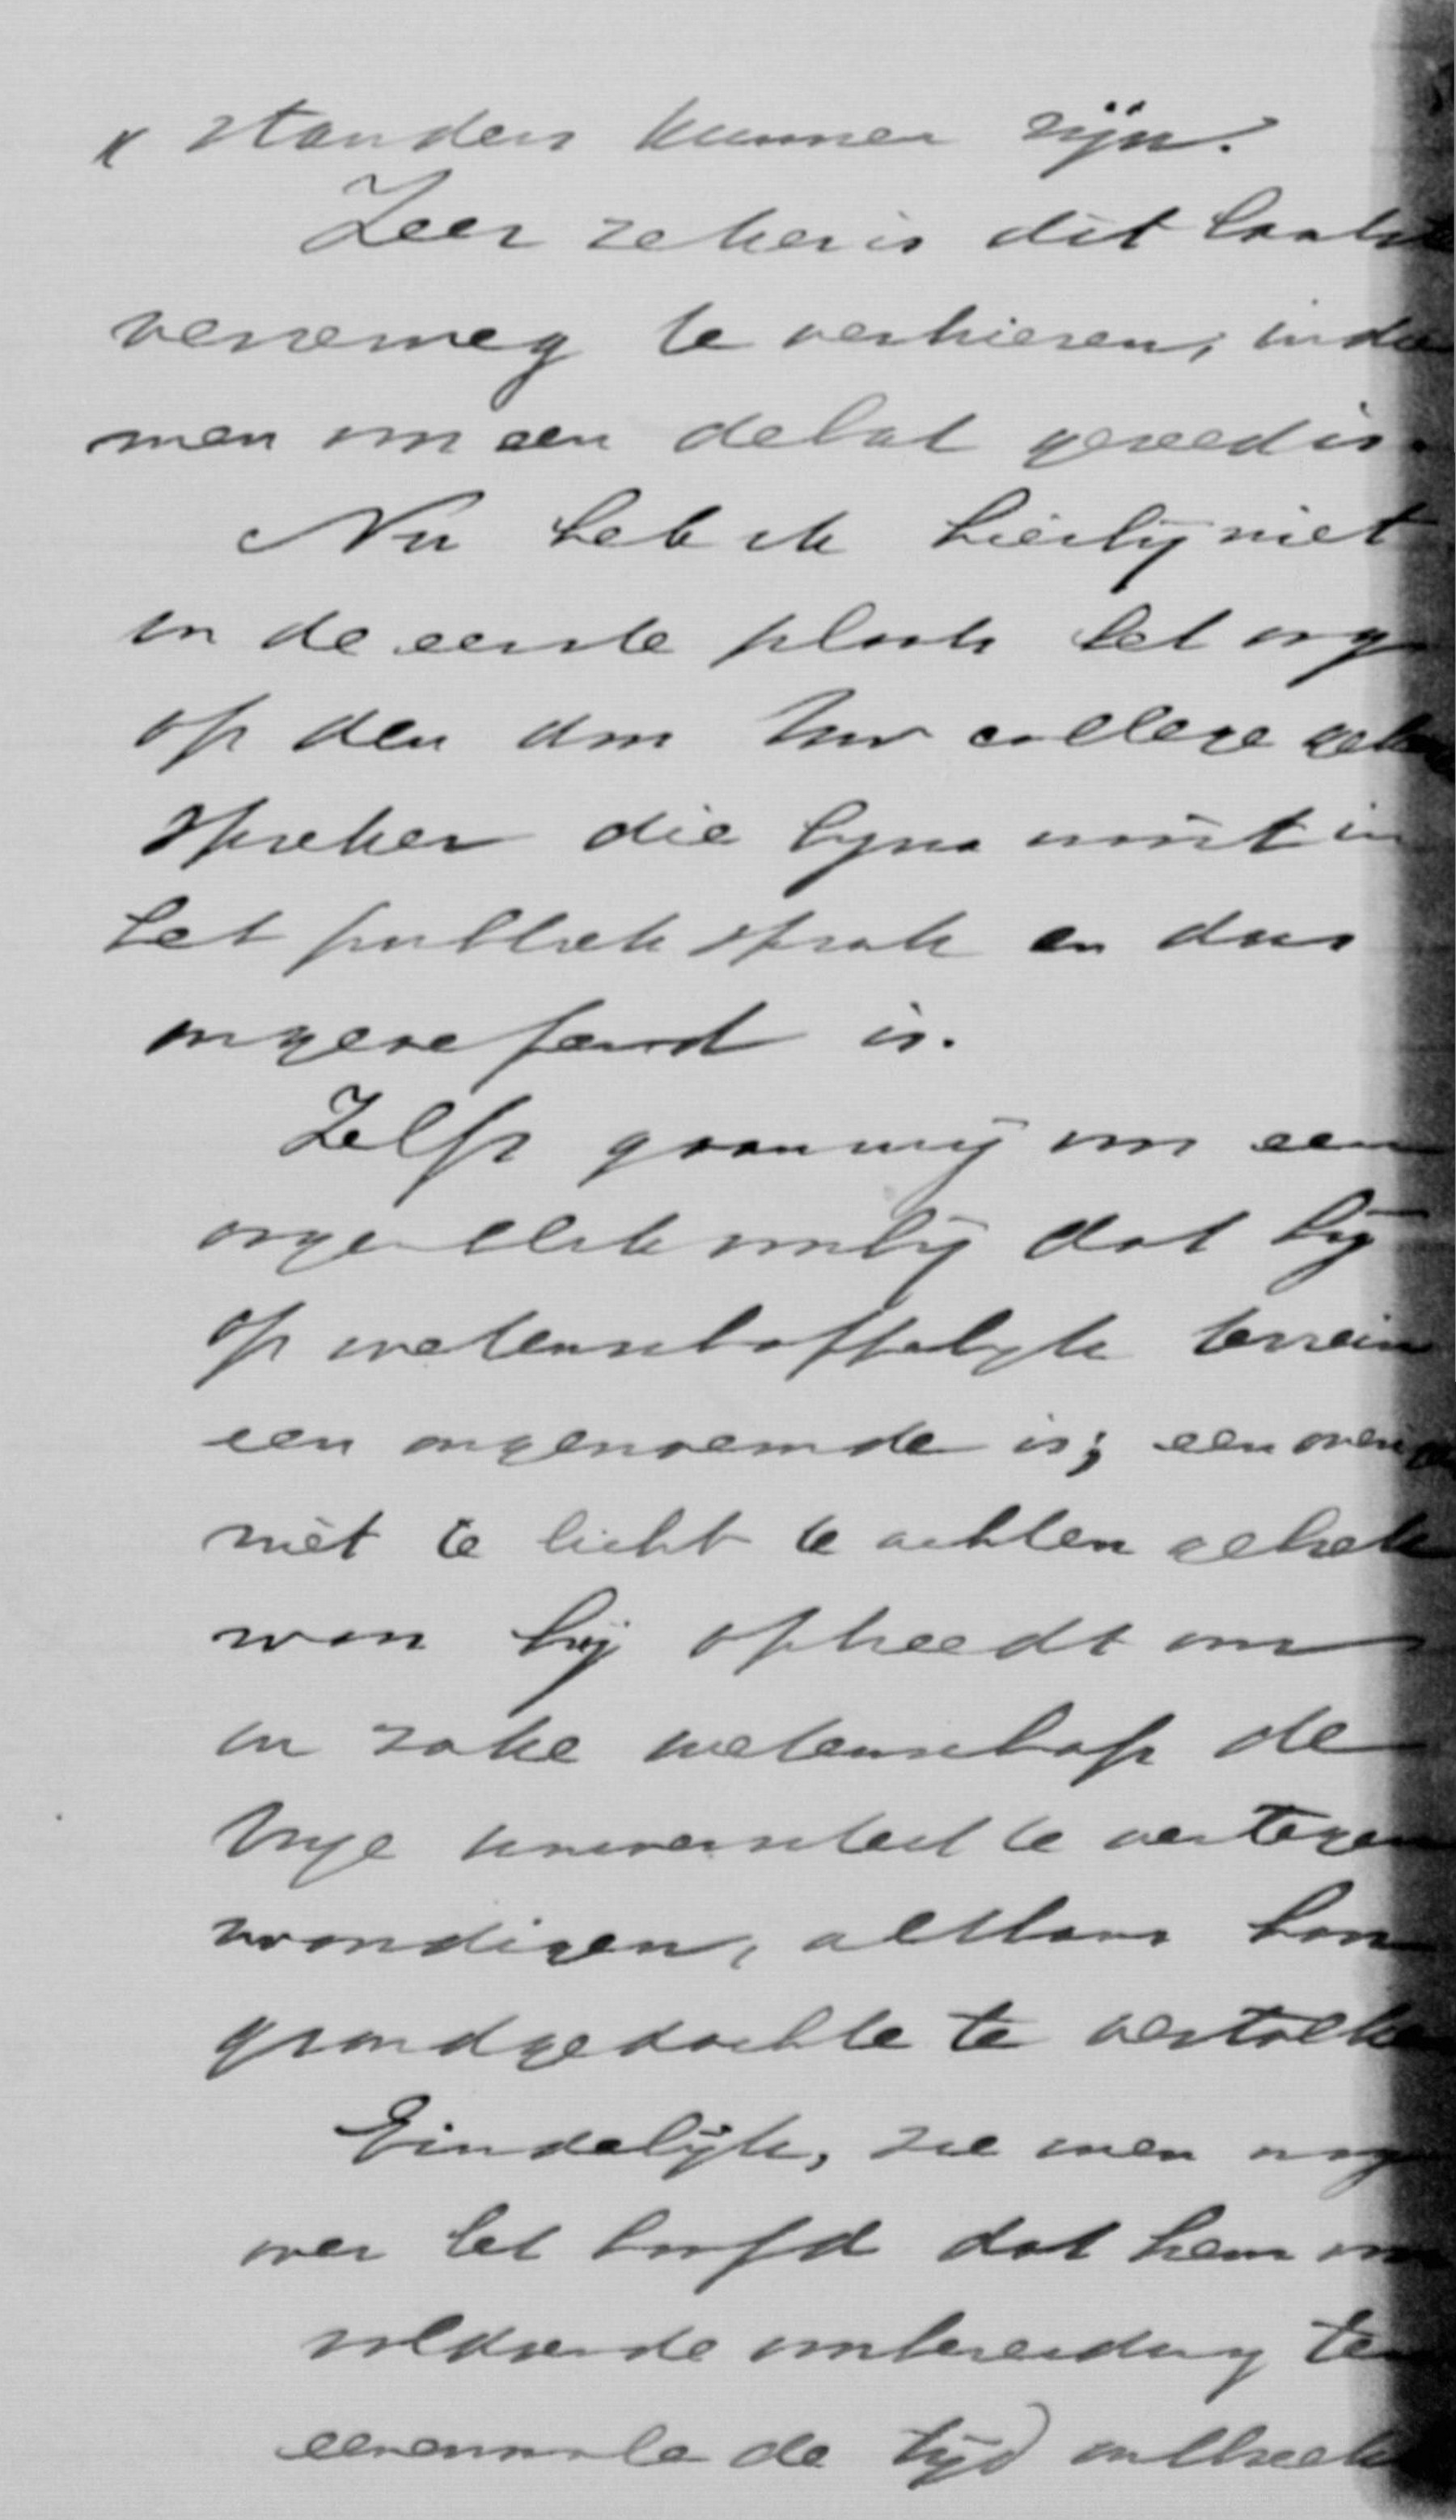 „standers kunnen zijn.
Zeer zeker is dit laatste
verreweg te verkiezen, indien
men om een debat gereed is.
Nu heb ik hierbij niet
in de eerste plaats het oog
op den aan Uw college
spreker die bijna nooit in
het publiek sprak en dus
ongeoefend is.
Zelfs gaan wij een
oogenblik voorbij dat hij
op wetenschappelijk terrein
een ongenoemde is; een overigens
niet te licht te achten gebrek
wan hij optreedt om
in zake wetenschap de
Vrije universiteit te vertegen
woordigen, althans haar
grondgedachte te vertolken
Eindelijk, zie men nog
over het hoofd dat hem een
voldoende voorbereiding ten
eenenmale de tijd ontbreekt